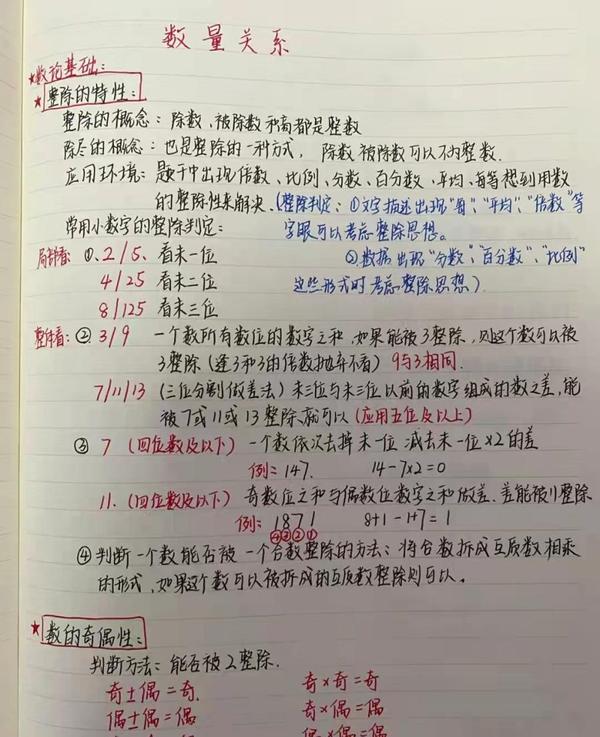 数量关系
★数论基础：
★整除的特性：
整除的概念：除数、被除数和商都是整数
除尽的概念：也是整除的一种方式，除数被除数可以不为整数.
应用环境：题干中出现倍数、比例、分数、百分数、平均、每等想到用数
的整除性来解决.(整除判定：①文字描述出现"每"、"平均"、"倍数"等
常用小数字的整除判定：字眼可以考虑整除思想。
局部看：①、2/5、看末一位 ②数据出现"分数"、"百分数"、"比例"
4/25 看末二位 这些形式时考虑整除思想.)
8/125 看末三位
整体看：② 3/9 一个数所有数位的数字之和，如果能被3整除，则这个数可以被
3整除（逢3和3的倍数抛弃不看）9与3相同.
7/11/13（三位分割做差法）末三位与末三位以前的数字组成的数之差，能
被7或11或13整除就可以（应用五位及以上）
③ 7（四位数及以下）一个数依次去掉末一位减去末一位×2的差
例：147. 14-7×2=0
11.（四位数及以下）奇数位之和与偶数位数字之和做差.差能被11整除
例：1871 8+1-1+7=1
④③②①
④判断一个数能否被一个合数整除的方法：将合数拆成互质数相乘
的形式，如果这个数可以被拆成的互质数整除则可以。
★数的奇偶性：
判断方法：能否被2整除.
奇±偶=奇. 奇×奇=奇
偶±偶=偶 奇×偶=偶